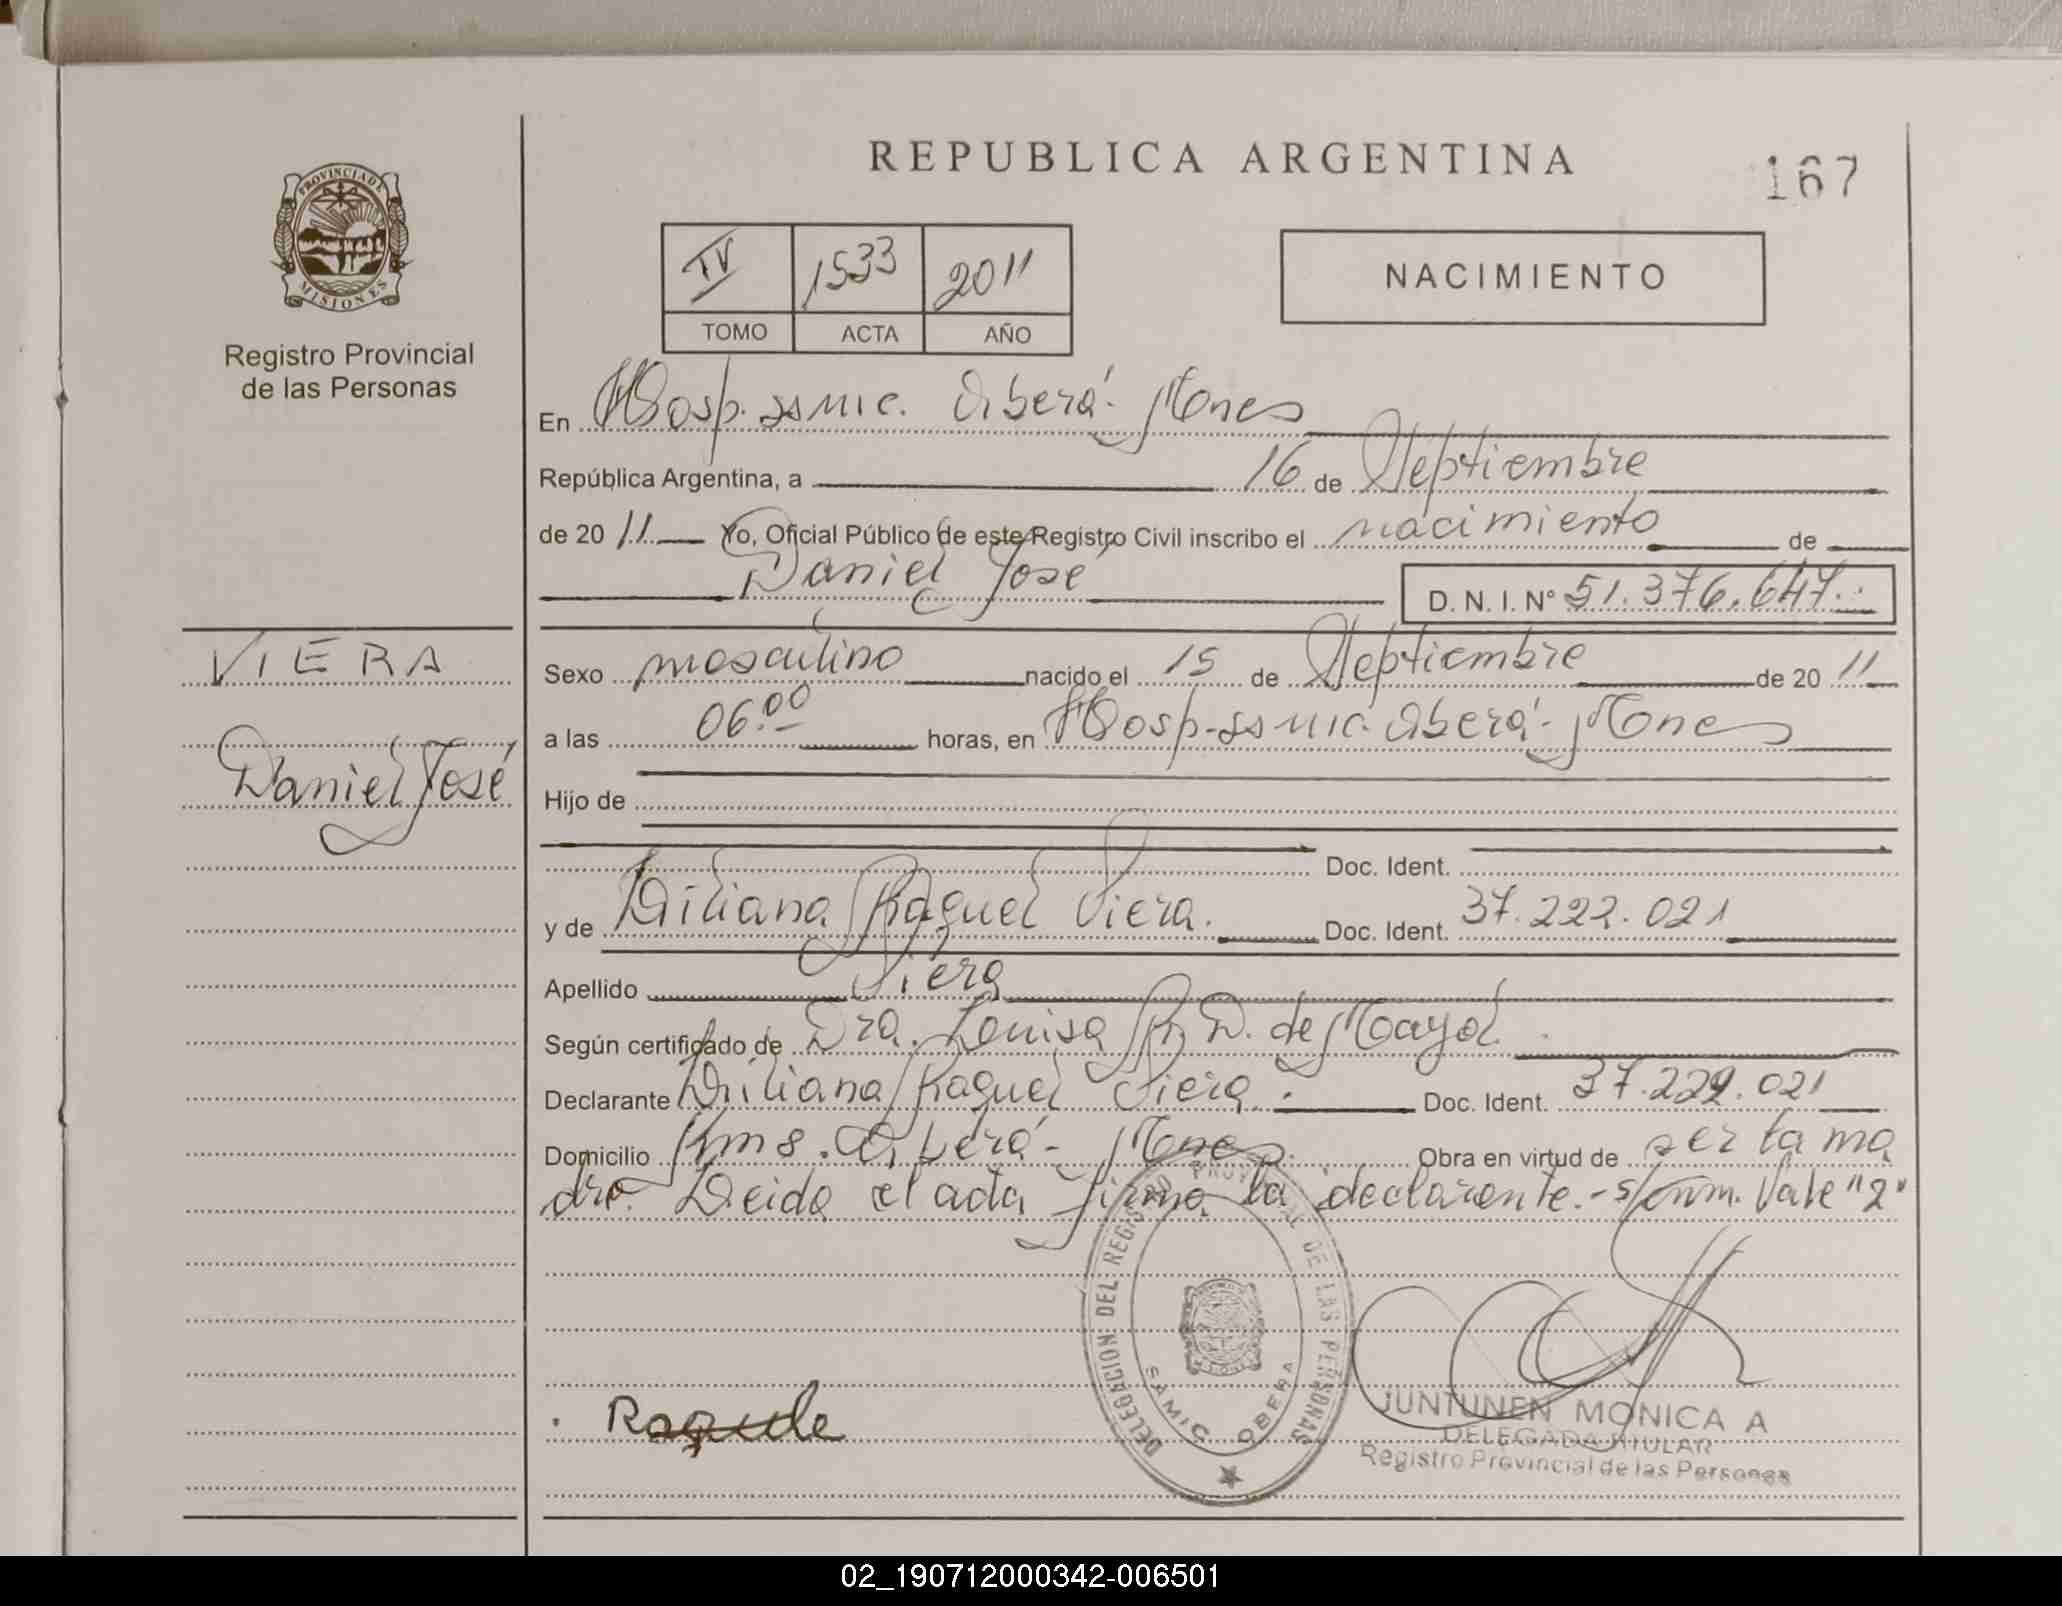 REPUBLICA ARGENTINA
167
PROVINCIA DE
MISIONES
Registro Provincial
de las Personas
IV 1533 2011
TOMO ACTA AÑO
NACIMIENTO
En Hosp. ssmic. Oberá - Mnes
República Argentina, a 16 de Septiembre
de 20 11 Yo, Oficial Público de este Registro Civil inscribo el nacimiento de
Daniel José D. N. I. N° 51.376.647.
VIERA
Daniel José
Sexo masculino nacido el 15 de Septiembre de 20 11
a las 06.00 horas, en Hosp. ssmic. Oberá - Mnes
Hijo de
Doc. Ident.
y de Liliana Raquel Viera. Doc. Ident. 37.222.021
Apellido Viera
Según certificado de Dra. Louisa R. D. de Mayol.
Declarante Liliana Raquel Viera. Doc. Ident. 37.222.021
Domicilio Km 8. Oberá - Mnes. Obra en virtud de ser la ma
dre. Leida el acta firma la declarante. - s/enm. Vale "2"
DELEGACION DEL REGISTRO PROVINCIAL DE LAS PERSONAS
SAMIC OBERA
Raquele
JUNTUNEN MONICA A
DELEGADA TITULAR
Registro Provincial de las Personas
02_190712000342-006501